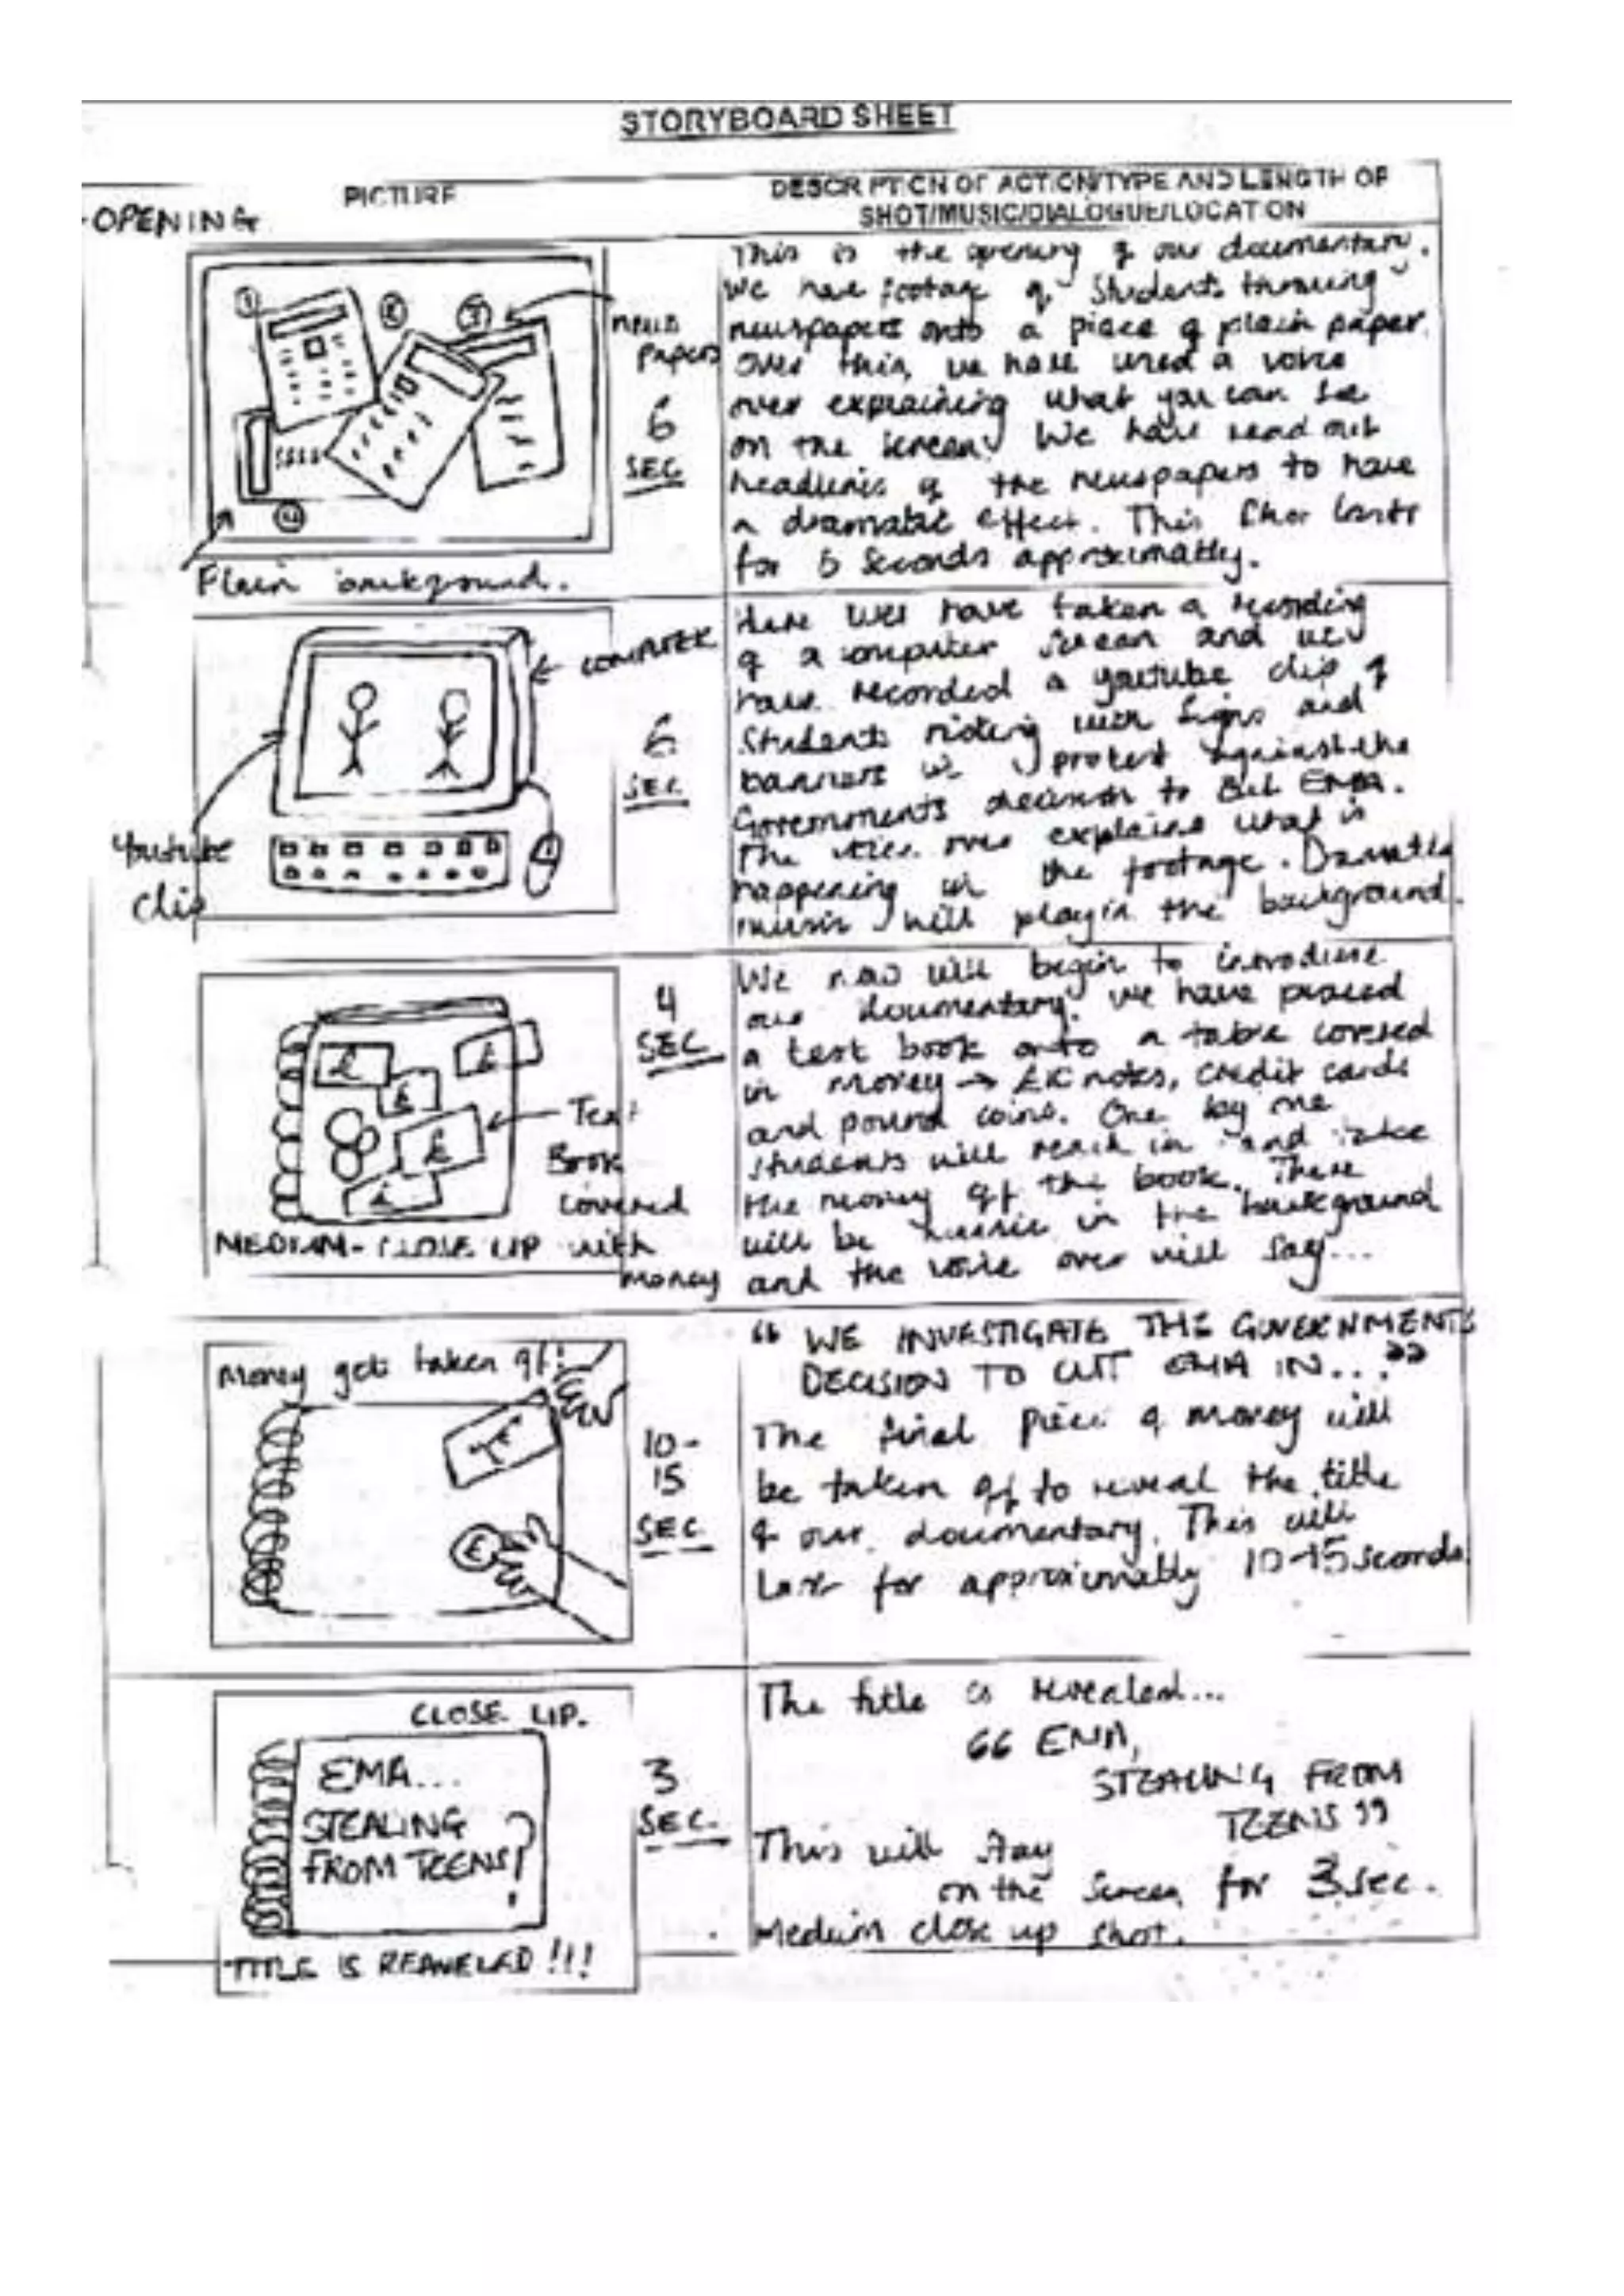 STORYBOARD SHEET
PICTURE
DESCRIPTION OF ACTION/TYPE AND LENGTH OF
SHOT/MUSIC/DIALOGUE/LOCATION
OPENING
1
2
3
4
news
papers
6
SEC
Plain background.
This is the opening of our documentary.
We have footage of Students throwing
newspapers onto a piece of plain paper.
Over this, we have used a voice
over explaining what you can see
on the screen. We have read out
headlines of the newspapers to have
a dramatic effect. This shot lasts
for 5 seconds approximatly.
COMPUTER
Youtube
clip
6
SEC
Here we have taken a recording
of a computer screen and we
have recorded a youtube clip of
Students rioting with signs and
banners protest against the
Governments decision to cut EMA.
The over explains what is
happening in the footage. Dramatic
music will play in the background.
£
£
£
£
£
Text
Book
covered
with
money
MEDIUM-CLOSE UP
4
SEC
We now will begin to introduce
our documentary. We have placed
a text book onto a table covered
in money → notes, credit cards
and pound coins. One by one
students will reach in and take
the money off the book. There
will be music in the background
and the voice over will say...
Money gets taken off!
£
£
10-
15
SEC
“ WE INVESTIGATE THE GOVERNMENTS
DECISION TO CUT EMA IN...”
The final piece of money will
be taken off to reveal the title
of our documentary. This will
Last for approximatly 10-15 seconds
CLOSE UP.
EMA...
STEALING
FROM TEENS?
TITLE IS REAVELED!!!
3
SEC.
The title is revealed...
“ EMA,
STEALING FROM
TEENS”
This will stay
on the screen for 3 sec.
Medium close up shot.